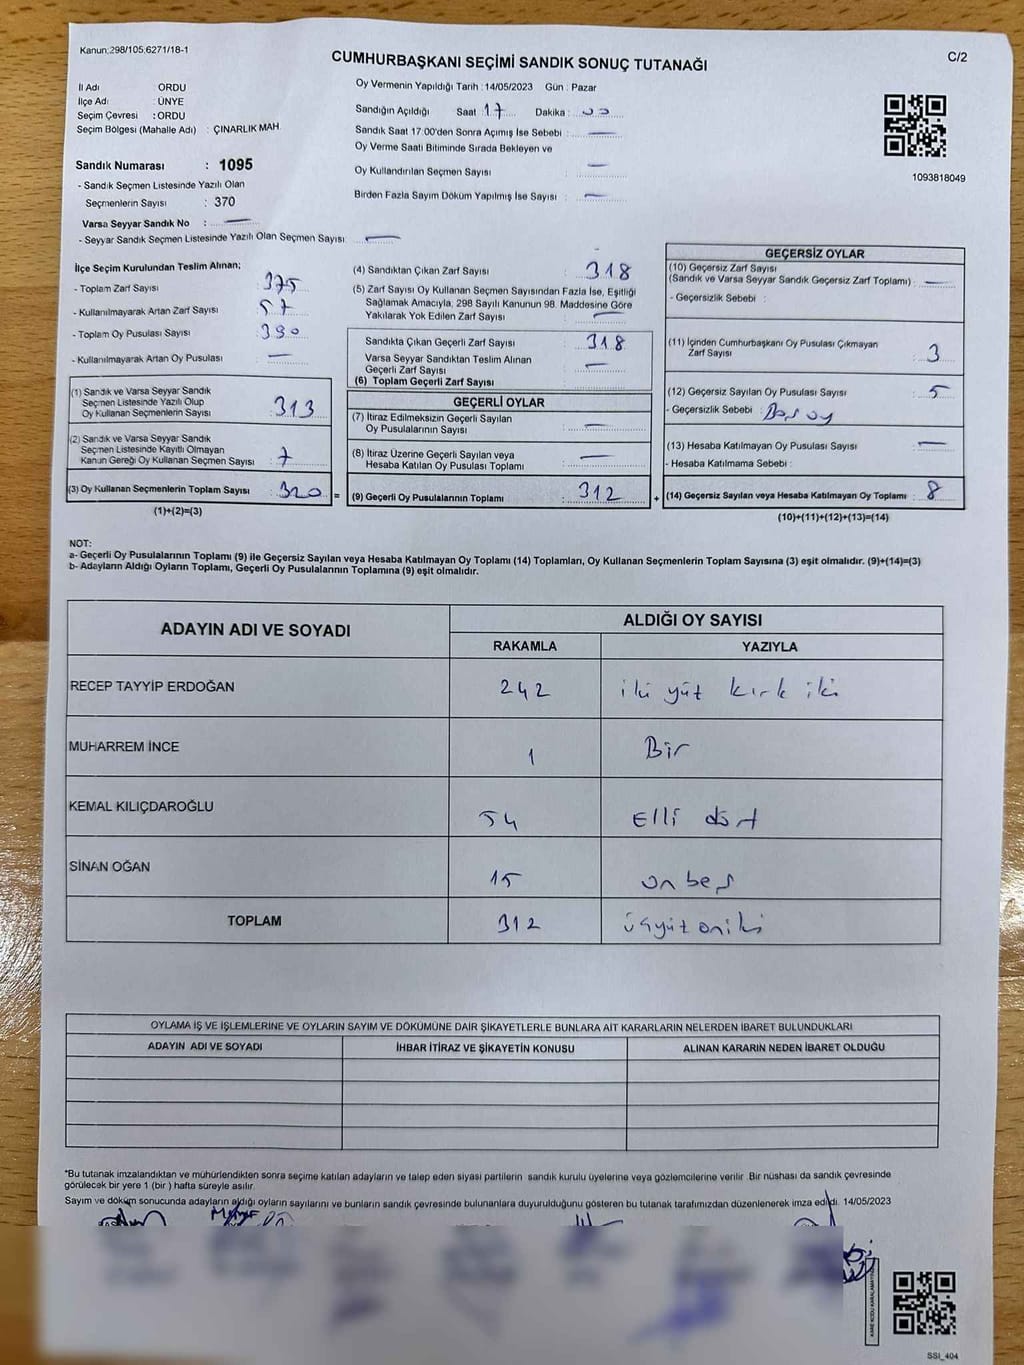 Kanun:298/105.6271/18-1
CUMHURBAŞKANI SEÇİMİ SANDIK SONUÇ TUTANAĞI
C/2
İl Adı ORDU
İlçe Adı : ÜNYE
Seçim Çevresi : ORDU
Seçim Bölgesi (Mahalle Adı) : ÇINARLIK MAH.
Sandık Numarası : 1095
- Sandık Seçmen Listesinde Yazılı Olan
Seçmenlerin Sayısı : 370
Varsa Seyyar Sandık No : —
- Seyyar Sandık Seçmen Listesinde Yazılı Olan Seçmen Sayısı: —
Oy Vermenin Yapıldığı Tarih : 14/05/2023 Gün : Pazar
Sandığın Açıldığı Saat : 17 Dakika : 00
Sandık Saat 17:00'den Sonra Açımış İse Sebebi : —
Oy Verme Saati Bitiminde Sırada Bekleyen ve
Oy Kullandırılan Seçmen Sayısı : —
Birden Fazla Sayım Döküm Yapılmış İse Sayısı : —
1093818049
İlçe Seçim Kurulundan Teslim Alınan;
- Toplam Zarf Sayısı : 375
- Kullanılmayarak Artan Zarf Sayısı : 57
- Toplam Oy Pusulası Sayısı : 390
- Kullanılmayarak Artan Oy Pusulası : —
(1) Sandık ve Varsa Seyyar Sandık
Seçmen Listesinde Yazılı Olup
Oy Kullanan Seçmenlerin Sayısı : 313
(2) Sandık ve Varsa Seyyar Sandık
Seçmen Listesinde Kayıtlı Olmayan
Kanun Gereği Oy Kullanan Seçmen Sayısı : 7
(3) Oy Kullanan Seçmenlerin Toplam Sayısı : 320 =
(1)+(2)=(3)
(4) Sandıktan Çıkan Zarf Sayısı : 318
(5) Zarf Sayısı Oy Kullanan Seçmen Sayısından Fazla İse, Eşitliği
Sağlamak Amacıyla, 298 Sayılı Kanunun 98. Maddesine Göre
Yakılarak Yok Edilen Zarf Sayısı : —
Sandıkta Çıkan Geçerli Zarf Sayısı : 318
Varsa Seyyar Sandıktan Teslim Alınan
Geçerli Zarf Sayısı : —
(6) Toplam Geçerli Zarf Sayısı :
GEÇERLİ OYLAR
(7) İtiraz Edilmeksizin Geçerli Sayılan
Oy Pusulalarının Sayısı : —
(8) İtiraz Üzerine Geçerli Sayılan veya
Hesaba Katılan Oy Pusulası Toplamı : —
(9) Geçerli Oy Pusulalarının Toplamı : 312 +
GEÇERSİZ OYLAR
(10) Geçersiz Zarf Sayısı
(Sandık ve Varsa Seyyar Sandık Geçersiz Zarf Toplamı) : —
- Geçersizlik Sebebi :
(11) İçinden Cumhurbaşkanı Oy Pusulası Çıkmayan
Zarf Sayısı : 3
(12) Geçersiz Sayılan Oy Pusulası Sayısı : 5
- Geçersizlik Sebebi : Boş oy
(13) Hesaba Katılmayan Oy Pusulası Sayısı : —
- Hesaba Katılmama Sebebi :
(14) Geçersiz Sayılan veya Hesaba Katılmayan Oy Toplamı : 8
(10)+(11)+(12)+(13)=(14)
NOT:
a- Geçerli Oy Pusulalarının Toplamı (9) ile Geçersiz Sayılan veya Hesaba Katılmayan Oy Toplamı (14) Toplamları, Oy Kullanan Seçmenlerin Toplam Sayısına (3) eşit olmalıdır. (9)+(14)=(3)
b- Adayların Aldığı Oyların Toplamı, Geçerli Oy Pusulalarının Toplamına (9) eşit olmalıdır.
ADAYIN ADI VE SOYADI ALDIĞI OY SAYISI
RAKAMLA YAZIYLA
RECEP TAYYİP ERDOĞAN 242 iki yüz kırk iki
MUHARREM İNCE 1 Bir
KEMAL KILIÇDAROĞLU 54 Elli dört
SİNAN OĞAN 15 on beş
TOPLAM 312 üçyüz oniki
OYLAMA İŞ VE İŞLEMLERİNE VE OYLARIN SAYIM VE DÖKÜMÜNE DAİR ŞİKAYETLERLE BUNLARA AİT KARARLARIN NELERDEN İBARET BULUNDUKLARI
ADAYIN ADI VE SOYADI İHBAR İTİRAZ VE ŞİKAYETİN KONUSU ALINAN KARARIN NEDEN İBARET OLDUĞU
*Bu tutanak imzalandıktan ve mühürlendikten sonra seçime katılan adayların ve talep eden siyasi partilerin sandık kurulu üyelerine veya gözlemcilerine verilir. Bir nüshası da sandık çevresinde
görülecek bir yere 1 (bir ) hafta süreyle asılır.
Sayım ve döküm sonucunda adayların aldığı oyların sayılarını ve bunların sandık çevresinde bulunanlara duyurulduğunu gösteren bu tutanak tarafımızdan düzenlenerek imza edildi. 14/05/2023
KARE KODU KARALAMAYINIZ
SSI_404